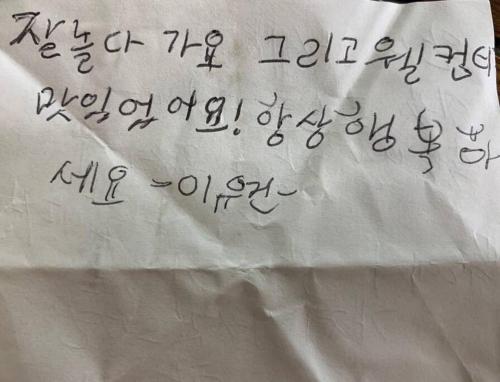 잘놀다 가요 그리고 웰컴티
맛있었어요! 항상행복하
세요 -이유건-